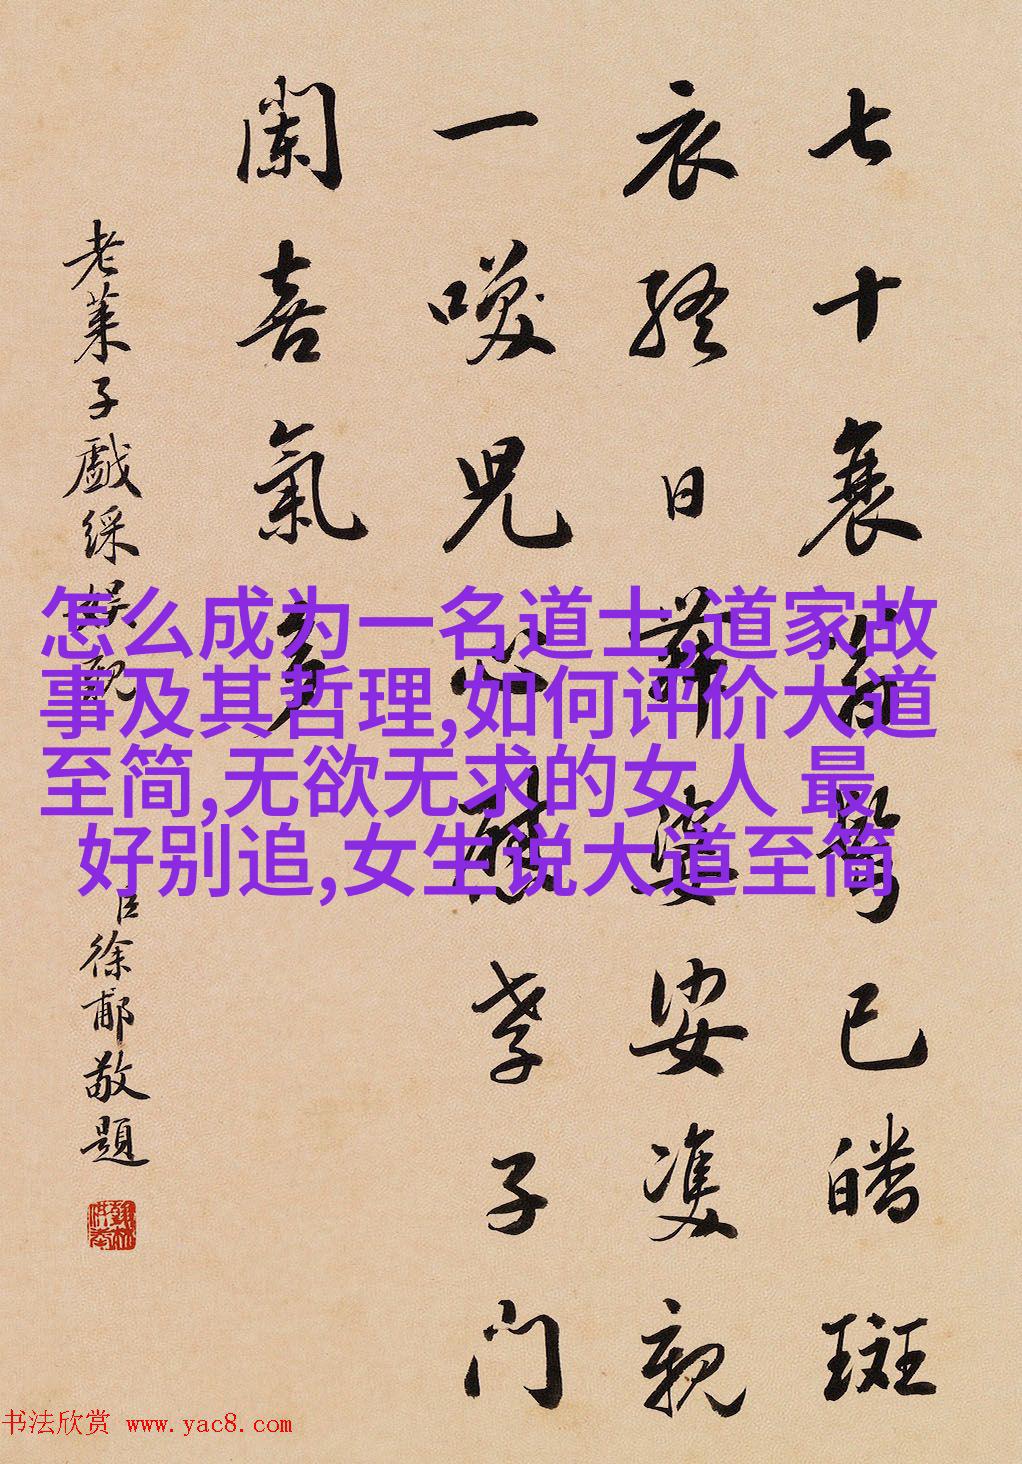 七十衰鬢已皤斑
衣終日舞婆娑雙親
一兒心慰孝子門
闌喜氣多
老萊子戲綵娛親 臣徐郙敬題
怎么成为一名道士,道家故
事及其哲理,如何评价大道
至简,无欲无求的女人 最
好别追,女生说大道至简
书法欣赏 www.yac8.com